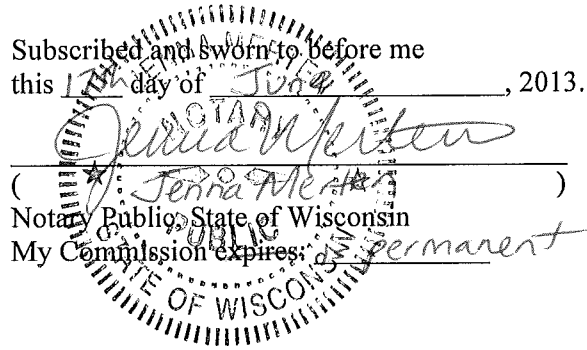 Subscribed and sworn to before me
this 17th day of June, 2013.
Jenna Merten
( Jenna Merten )
Notary Public, State of Wisconsin
My Commission expires: permanent
JENNA MERTEN
NOTARY
PUBLIC
STATE OF WISCONSIN